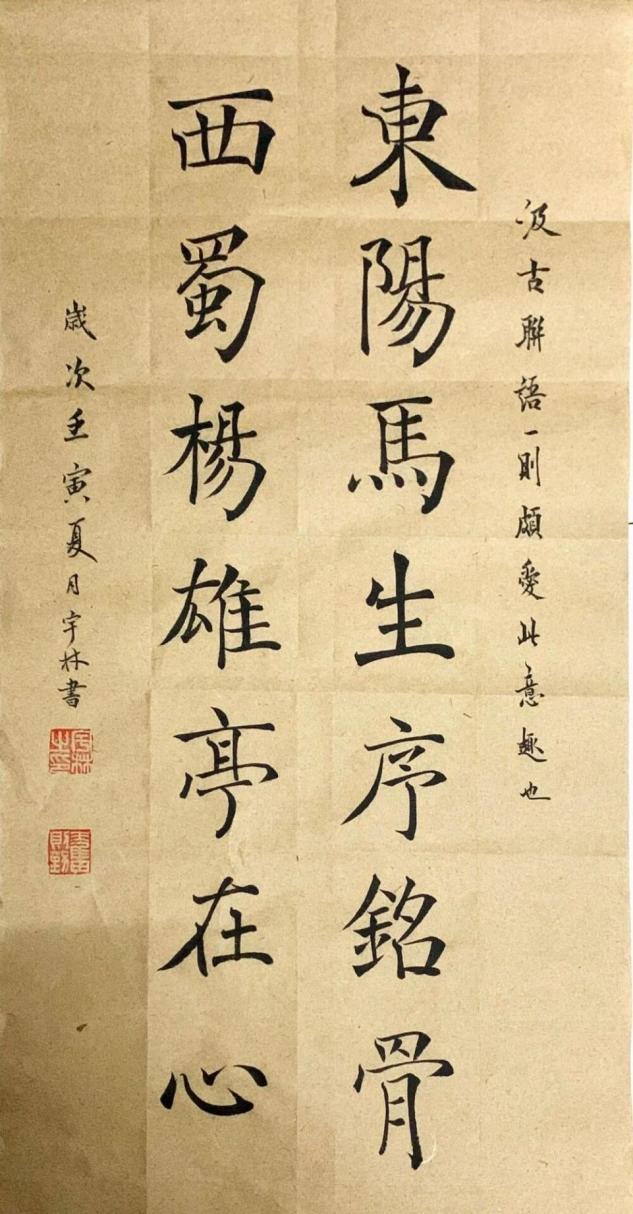 汲古聯語一則頗愛此意趣也
東陽馬生序銘骨
西蜀楊雄亭在心
歲次壬寅夏月宇林書